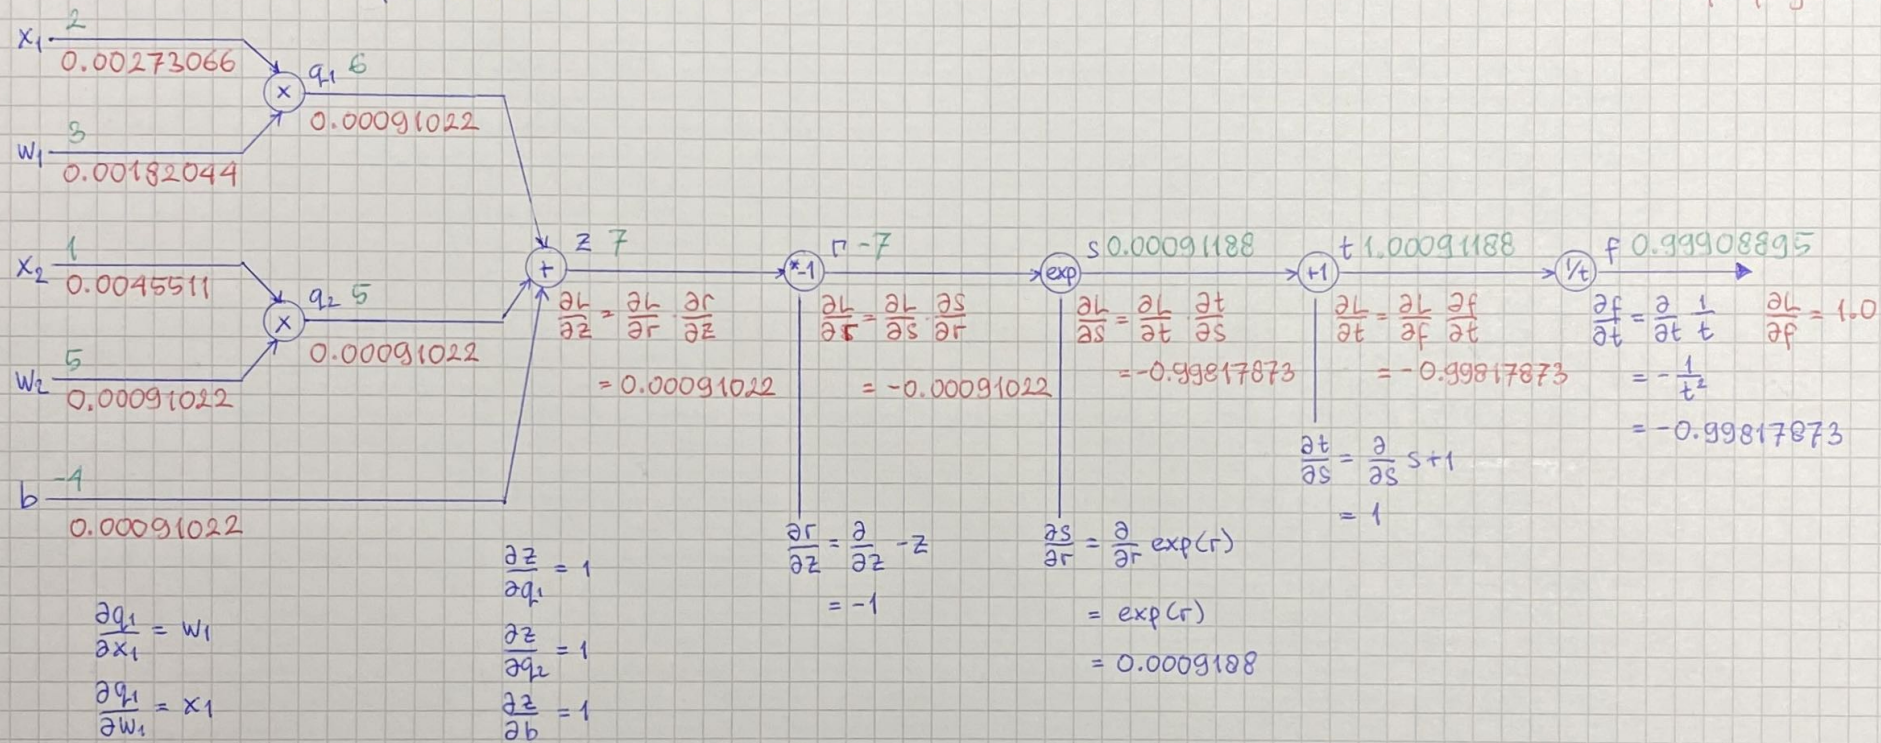 x₁ 2
0.00273066
q₁ 6
×
0.00091022
w₁ 3
0.00182044
x₂ 1
0.0045511
q₂ 5
×
0.00091022
w₂ 5
0.00091022
b -4
0.00091022
+
z 7
∂L/∂z = ∂L/∂r · ∂r/∂z
= 0.00091022
*-1
r -7
∂L/∂r = ∂L/∂s · ∂s/∂r
= -0.00091022
exp
s 0.00091188
∂L/∂s = ∂L/∂t · ∂t/∂s
= -0.99817873
+1
t 1.00091188
∂L/∂t = ∂L/∂f ∂f/∂t
= -0.99817873
1/t
f 0.99908895
∂f/∂t = ∂/∂t 1/t
= -1/t²
= -0.99817873
∂L/∂f = 1.0
∂t/∂s = ∂/∂s s+1
= 1
∂s/∂r = ∂/∂r exp(r)
= exp(r)
= 0.0009188
∂r/∂z = ∂/∂z -z
= -1
∂z/∂q₁ = 1
∂z/∂q₂ = 1
∂z/∂b = 1
∂q₁/∂x₁ = w₁
∂q₁/∂w₁ = x₁